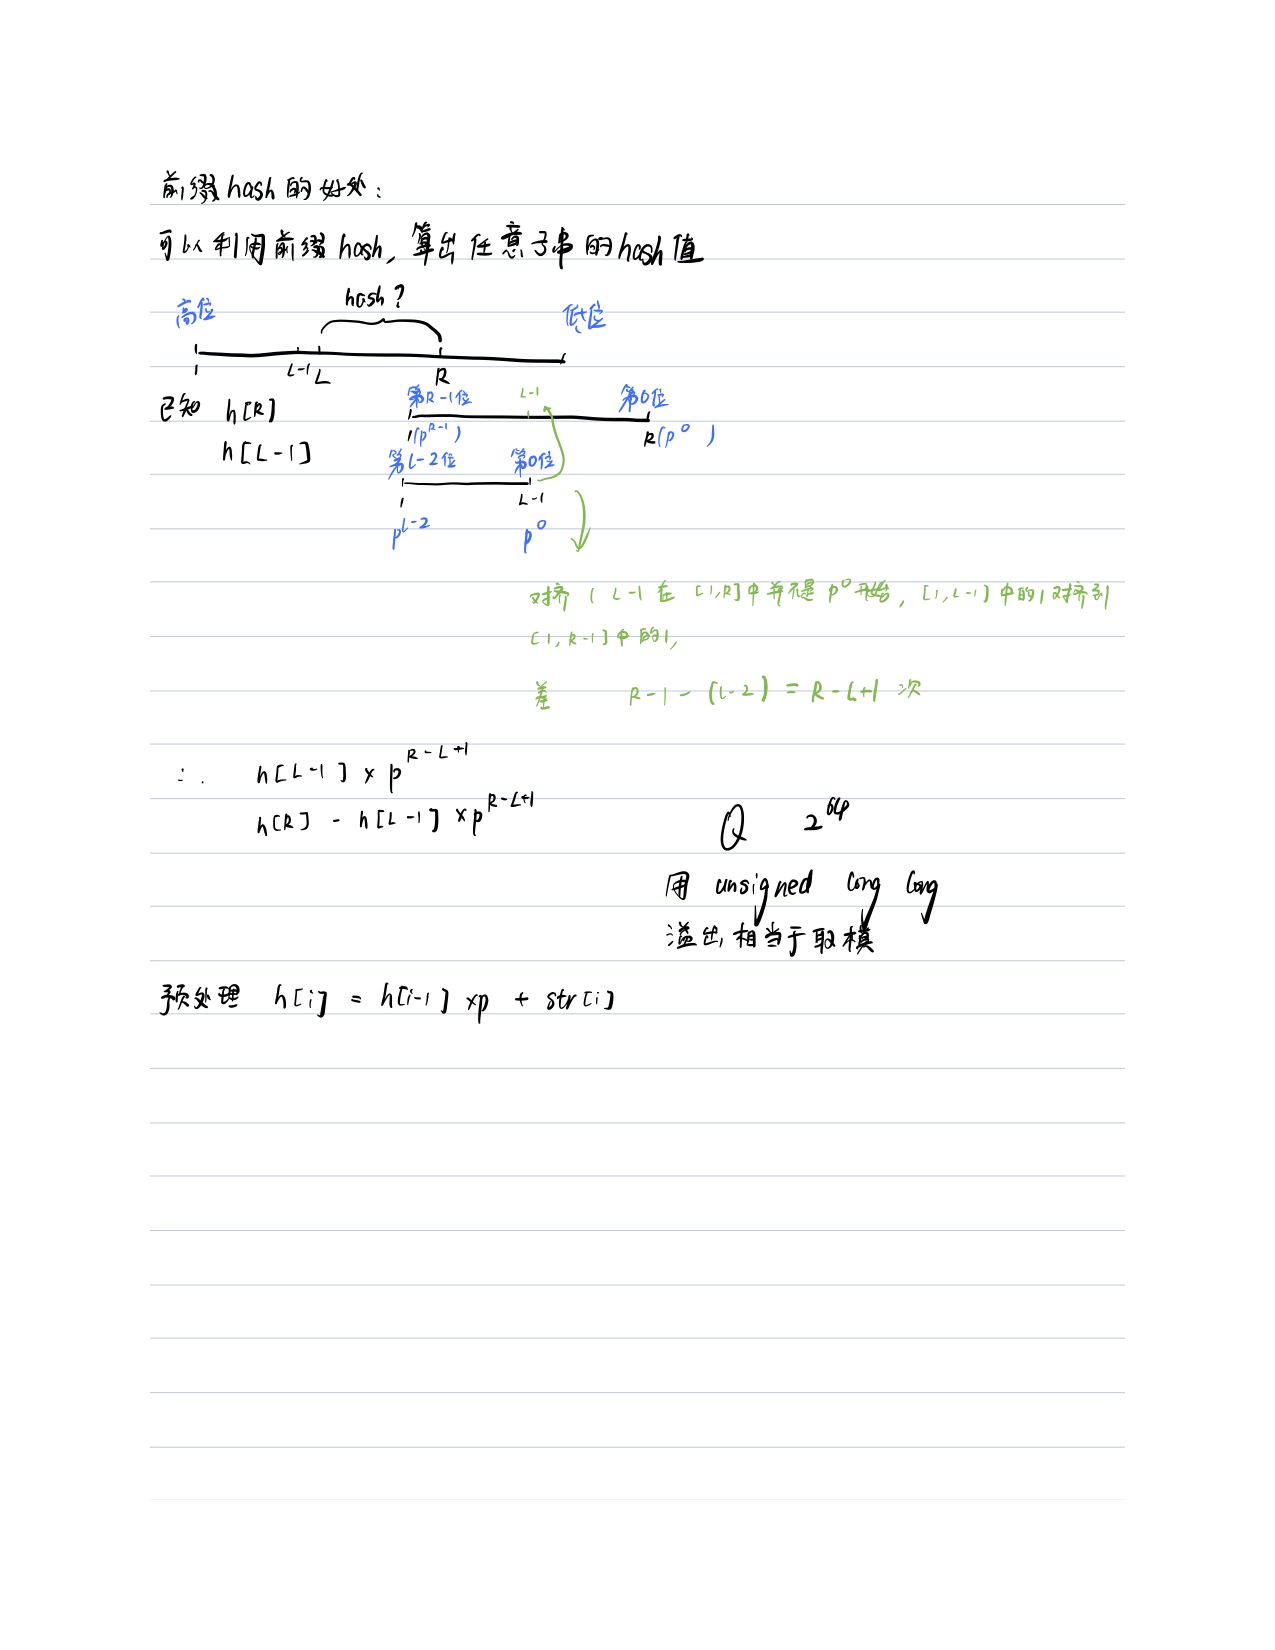 前缀hash的好处:
可以利用前缀hash,算出任意子串的hash值
hash?
高位 低位
1 L-1 L R
已知 h[R]
第R-1位 L-1 第0位
1(p^{R-1}) R(p^0)
h[L-1]
第L-2位 第0位
1 L-1
p^{L-2} p^0
对齐 ( L-1 在 [1,R]中并不是 p^0 开始, [1,L-1]中的1对齐到
[1,R-1]中的1,
差 R-1-(L-2) = R-L+1 次
∴ h[L-1] × p^{R-L+1}
h[R] - h[L-1] × p^{R-L+1}
Q 2^{64}
用 unsigned long long
溢出相当于取模
预处理 h[i] = h[i-1] ×p + str[i]